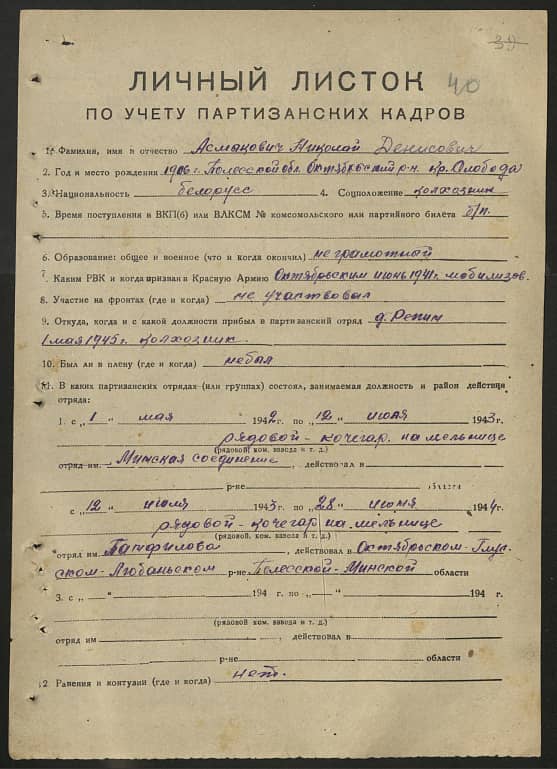 39
40
ЛИЧНЫЙ ЛИСТОК
ПО УЧЕТУ ПАРТИЗАНСКИХ КАДРОВ
1. Фамилия, имя и отчество Асмыкович Николай Денисович
2. Год и место рождения 1906 г. Полесской обл. Октябрьский р-н. Кр. Слобода
3. Национальность белорусс 4. Соцположение колхозник
5. Время поступления в ВКП(б) или ВЛКСМ № комсомольского или партийного билета б/п.
6. Образование: общее и военное (что и когда окончил) не грамотной
7. Каким РВК и когда призван в Красную Армию Октябрьским июнь 1941 г. мобилизов.
8. Участие на фронтах (где и когда) не участвовал
9. Откуда, когда и с какой должности прибыл в партизанский отряд д. Репин
1 мая 1945 г. колхозник.
10. Был ли в плену (где и когда) небыл
11. В каких партизанских отрядах (или группах) состоял, занимаемая должность и район действия
отряда:
1. с „1" мая 1942 г. по „12" июля 1943 г.
рядовой - кочегар. на мельнице
(рядовой, ком. взвода и т. д.)
отряд им. Минская соединение, действовал в
р-не
с „12" июля 1943 г. по „28" июня 1944 г.
рядовой - кочегар на мельнице
(рядовой, ком. взвода и т. д.)
отряд им Панфилова, действовал в Октябрьском - Глус-
ском - Любаньском р-не Полесской - Минской области
3. с „—" 194 г. по „—" 194 г.
(рядовой, ком. взвода и т. д.)
отряд им , действовал в
р-не области
12. Ранения и контузии (где и когда) нет.